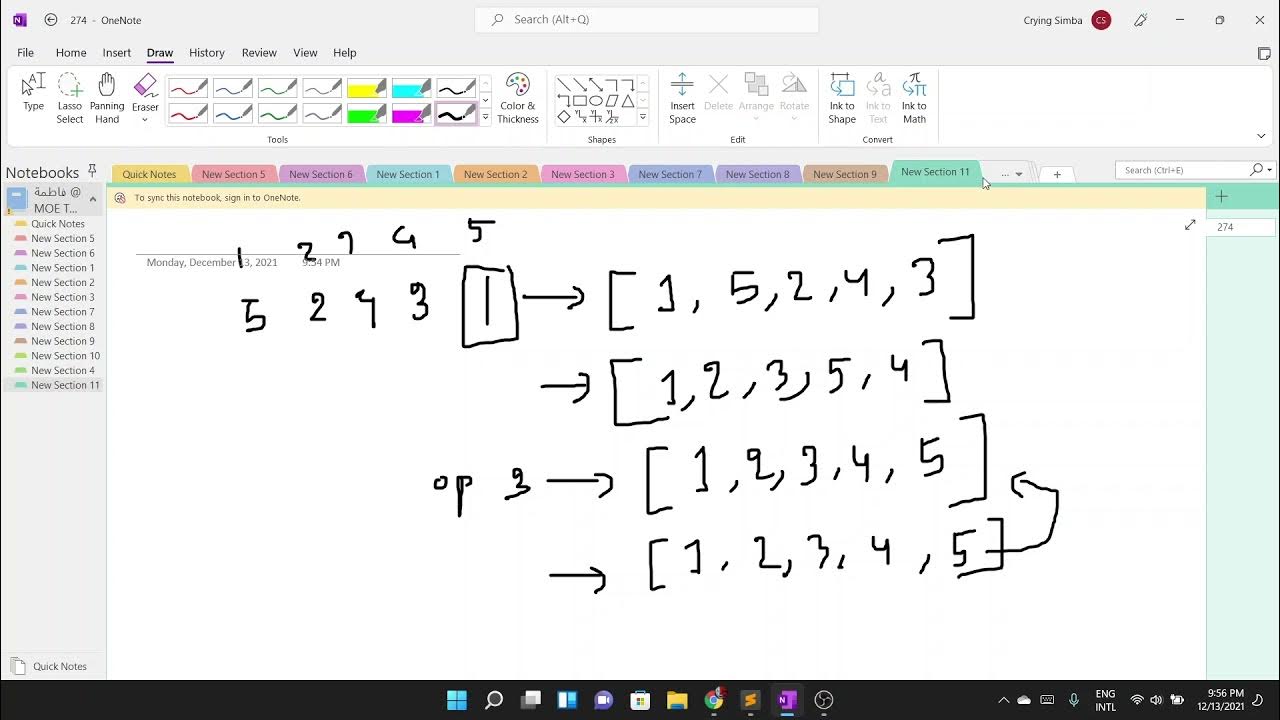 274 - OneNote
Search (Alt+Q)
Crying Simba CS
File Home Insert Draw History Review View Help
Type Lasso Select Panning Hand Eraser Color & Thickness Insert Space Delete Arrange Rotate Ink to Shape Ink to Text Ink to Math
Tools Shapes Edit Convert
Notebooks Quick Notes New Section 5 New Section 6 New Section 1 New Section 2 New Section 3 New Section 7 New Section 8 New Section 9 New Section 11 ... Search (Ctrl+E)
فاطمة @
MOE T...
To sync this notebook, sign in to OneNote.
Quick Notes
New Section 5
New Section 6
New Section 1
New Section 2
New Section 3
New Section 7
New Section 8
New Section 9
New Section 10
New Section 4
New Section 11
Quick Notes
274
1 2 3 4 5
Monday, December 13, 2021 9:34 PM
5 2 4 3 1 → [1, 5, 2, 4, 3]
→ [1, 2, 3, 5, 4]
op 3 → [1, 2, 3, 4, 5]
→ [1, 2, 3, 4, 5]
ENG
INTL
9:56 PM
12/13/2021